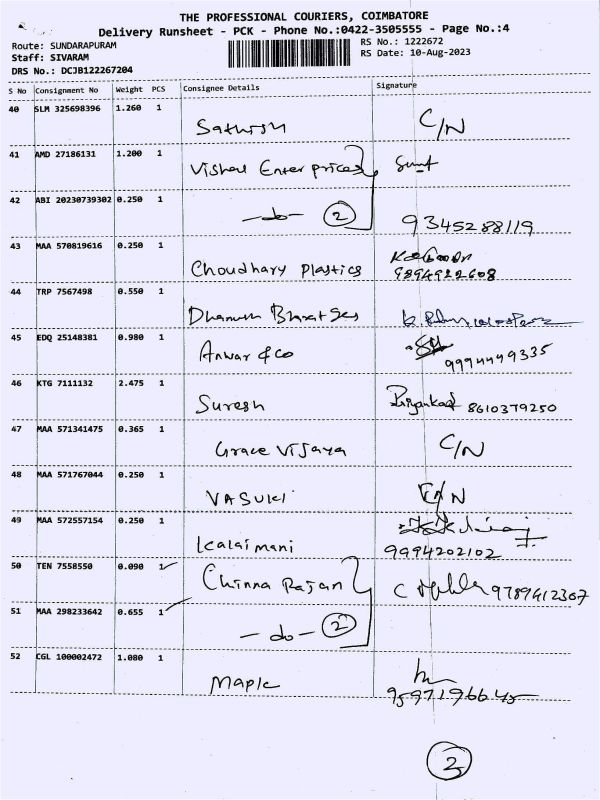 THE PROFESSIONAL COURIERS, COIMBATORE
Delivery Runsheet - PCK - Phone No.:0422-3505555 - Page No.:4
Route: SUNDARAPURAM
RS No.: 1222672
Staff: SIVARAM
RS Date: 10-Aug-2023
DRS No.: DCJB122267204
S No Consignment No Weight PCS Consignee Details Signature
40 SLM 325698396 1.260 1 Sathish C/N
41 AMD 27186131 1.200 1 Vishal Enterprices
42 ABI 20230739302 0.250 1 -do- 2 9345288119
43 MAA 570819616 0.250 1 Choudhary Plastics 9894922608
44 TRP 7567498 0.550 1 Dhanush Bharat Gas
45 EDQ 25148381 0.980 1 Anwar & Co 9994449335
46 KTG 7111132 2.475 1 Suresh Priyanka 8610379250
47 MAA 571341475 0.365 1 Grace Vijaya C/N
48 MAA 571767044 0.250 1 VASUKI C/N
49 MAA 572557154 0.250 1 Kalaimani 9994202102
50 TEN 7558550 0.090 1 Chinna Rajan 9789412367
51 MAA 298233642 0.655 1 -do- 2
52 CGL 100002472 1.080 1 Maple 9597196645